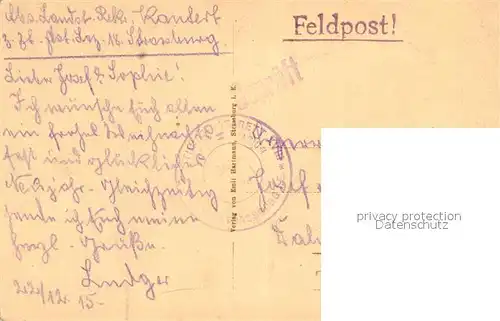 Abs. Landst. Rekr. Kantert
z. Zt. Fest. Laz. 18. Strassburg.
Lieber Josef & Sophie!
Ich wünsche Euch allen
ein frohes Weihnachts
fest und glückliches
Neujahr. Gleichzeitig
sende ich Euch meine
herzl. Grüße.
Ludger
22/12. 15.
Verlag von Emil Hartmann, Strassburg i. E.
Feldpost!
privacy protection
Datenschutz